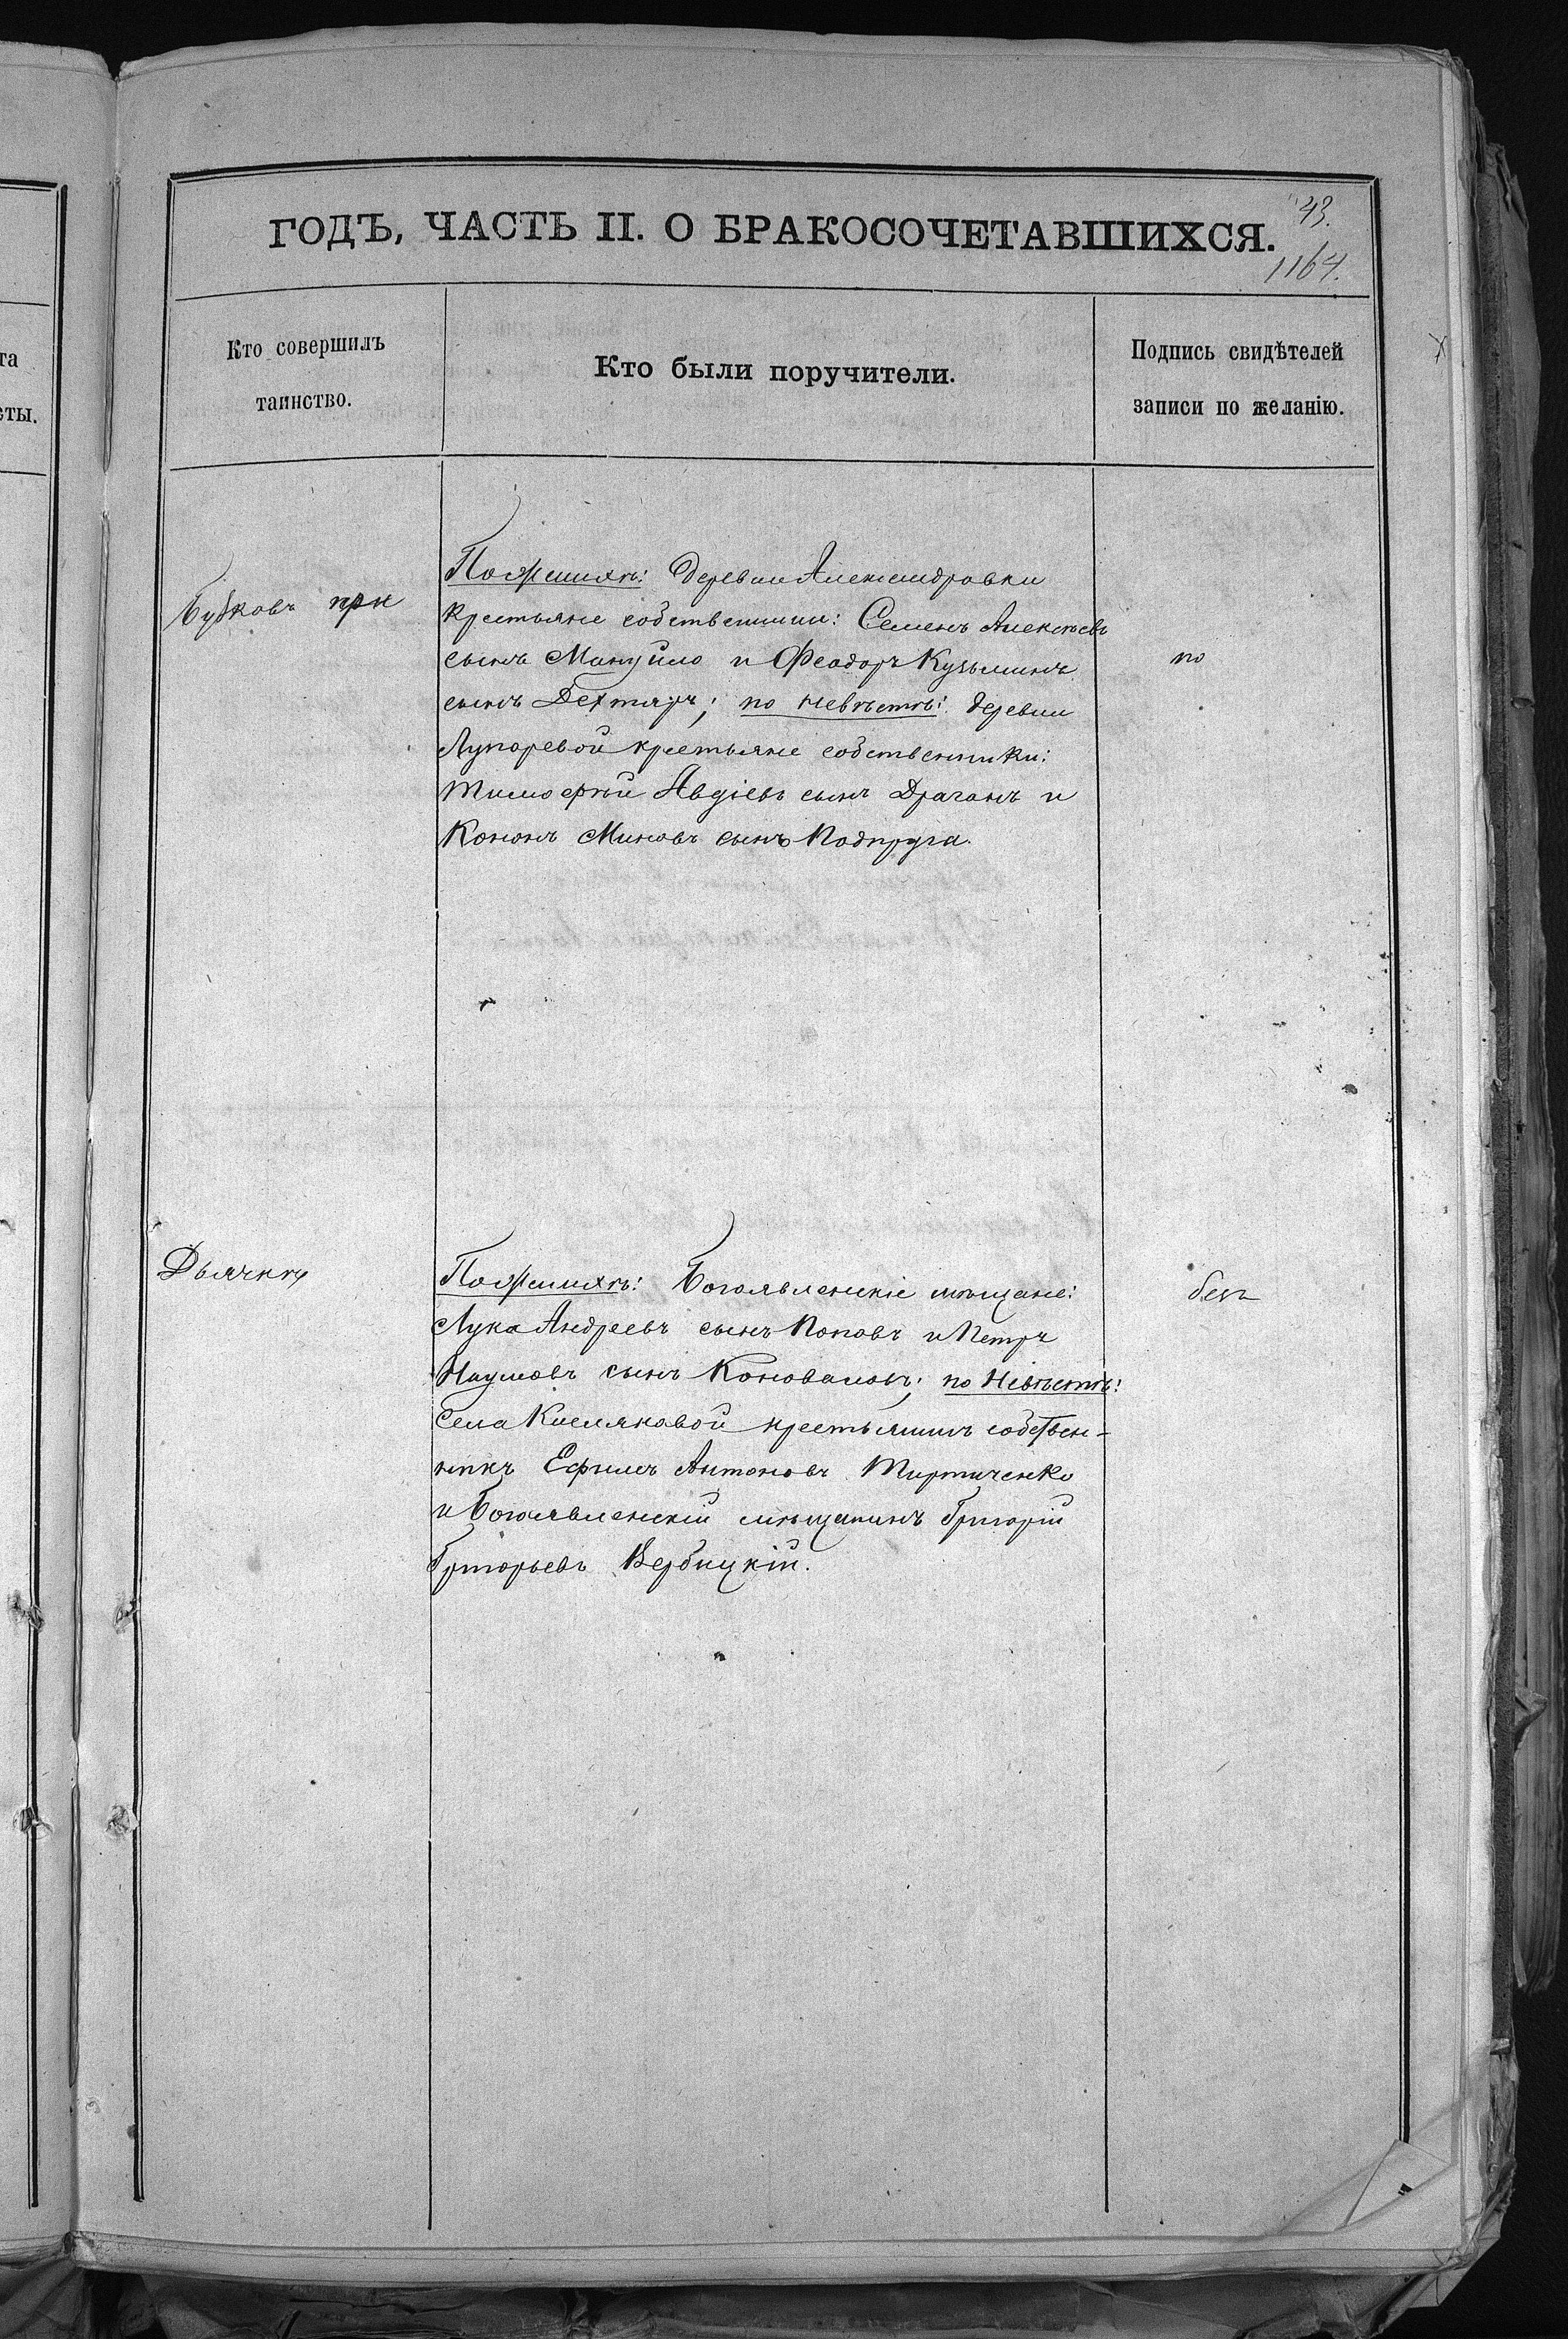 43.
ГОДЪ, ЧАСТЬ II. О БРАКОСОЧЕТАВШИХСЯ.
1164.
та
еты.
Кто совершилъ
таинство.
Кто были поручители.
Подпись свидѣтелей
записи по желанію.
Бубковъ при
По женихѣ: деревни Александровки
крестьяне собственники: Семенъ Алексѣевъ
сынъ Мануйло и Феодоръ Кузьминъ
сынъ Дехтяръ; по невѣстѣ: деревни
Лупаревой крестьяне собственники:
Тимофей Авдіевъ сынъ Драганъ и
Кононъ Миновъ сынъ Подпруга.
по
Дьячкѣ
По женихѣ: Богоявленскіе мѣщане:
Лука Андреевъ сынъ Поповъ и Петръ
Наумовъ сынъ Коноваловъ; по Невѣстѣ:
Села Кисляковой крестьянинъ собствен-
никъ Ефимъ Антоновъ
и Богоявленскій мѣщанинъ Григорій
Григорьевъ Вербицкій.